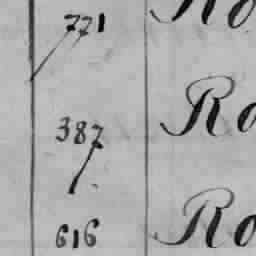 771 Ro
387 Ro
1.
616 Ro